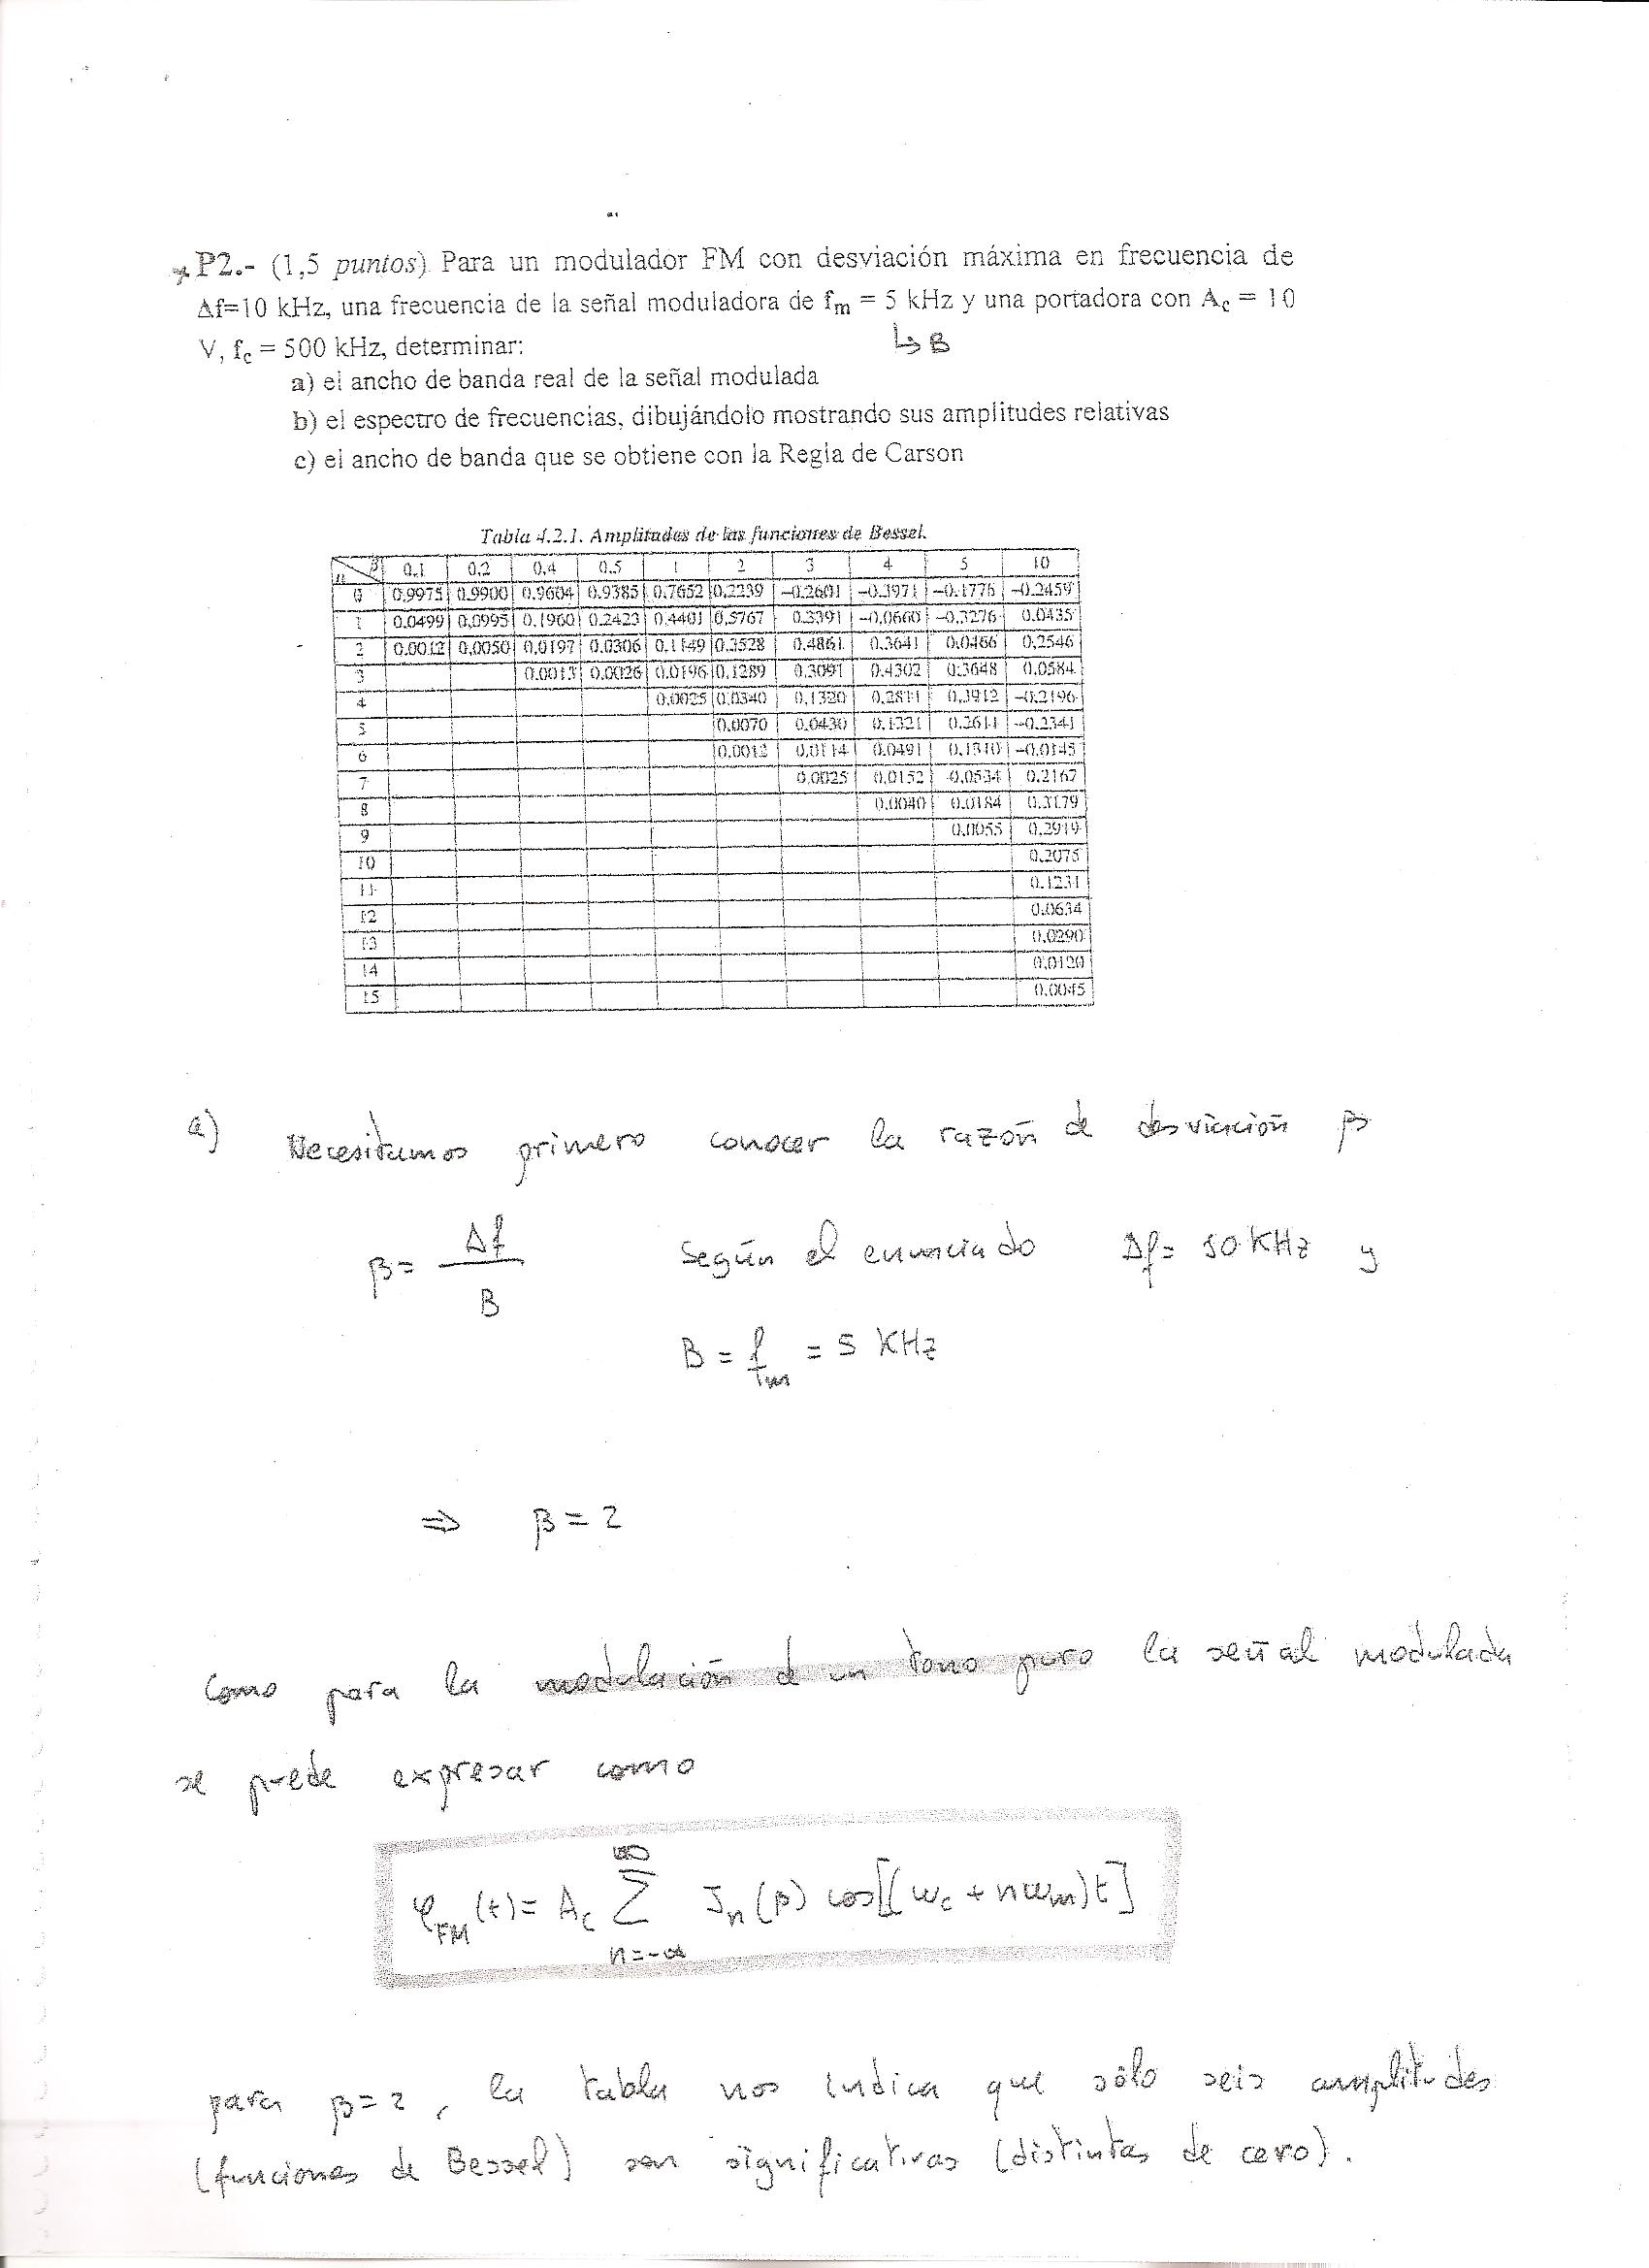 P2.- (1,5 puntos). Para un modulador FM con desviación máxima en frecuencia de
Δf=10 kHz, una frecuencia de la señal moduladora de fm = 5 kHz y una portadora con Ac = 10
V, fc = 500 kHz, determinar:
↳ B
a) el ancho de banda real de la señal modulada
b) el espectro de frecuencias, dibujándolo mostrando sus amplitudes relativas
c) el ancho de banda que se obtiene con la Regla de Carson
Tabla 4.2.1. Amplitudes de las funciones de Bessel.
n β 0.1 0.2 0.4 0.5 1 2 3 4 5 10
0 0.9975 0.9900 0.9604 0.9385 0.7652 0.2239 −0.2601 −0.3971 −0.1776 −0.2459
1 0.0499 0.0995 0.1960 0.2423 0.4401 0.5767 0.3391 −0.0660 −0.3276 0.0435
2 0.0012 0.0050 0.0197 0.0306 0.1149 0.3528 0.4861 0.3641 0.0466 0.2546
3 0.0013 0.0026 0.0196 0.1289 0.3091 0.4302 0.3648 0.0584
4 0.0025 0.0340 0.1320 0.2811 0.3912 −0.2196
5 0.0070 0.0430 0.1321 0.2611 −0.2341
6 0.0012 0.0114 0.0491 0.1310 −0.0145
7 0.0025 0.0152 0.0534 0.2167
8 0.0040 0.0184 0.3179
9 0.0055 0.2919
10 0.2075
11 0.1231
12 0.0634
13 0.0290
14 0.0120
15 0.0045
a) Necesitamos primero conocer la razón de desviación β
β = Δf / B Según el enunciado Δf = 10 KHz y
B = fm = 5 KHz
⇒ β = 2
Como para la modulación de un tono puro la señal modulada
se puede expresar como
φFM (t) = Ac ∑ n=-∞ ∞ Jn (β) cos[(ωc + nωm)t]
para β = 2, la tabla nos indica que sólo seis amplitudes
(funciones de Bessel) son significativas (distintas de cero).